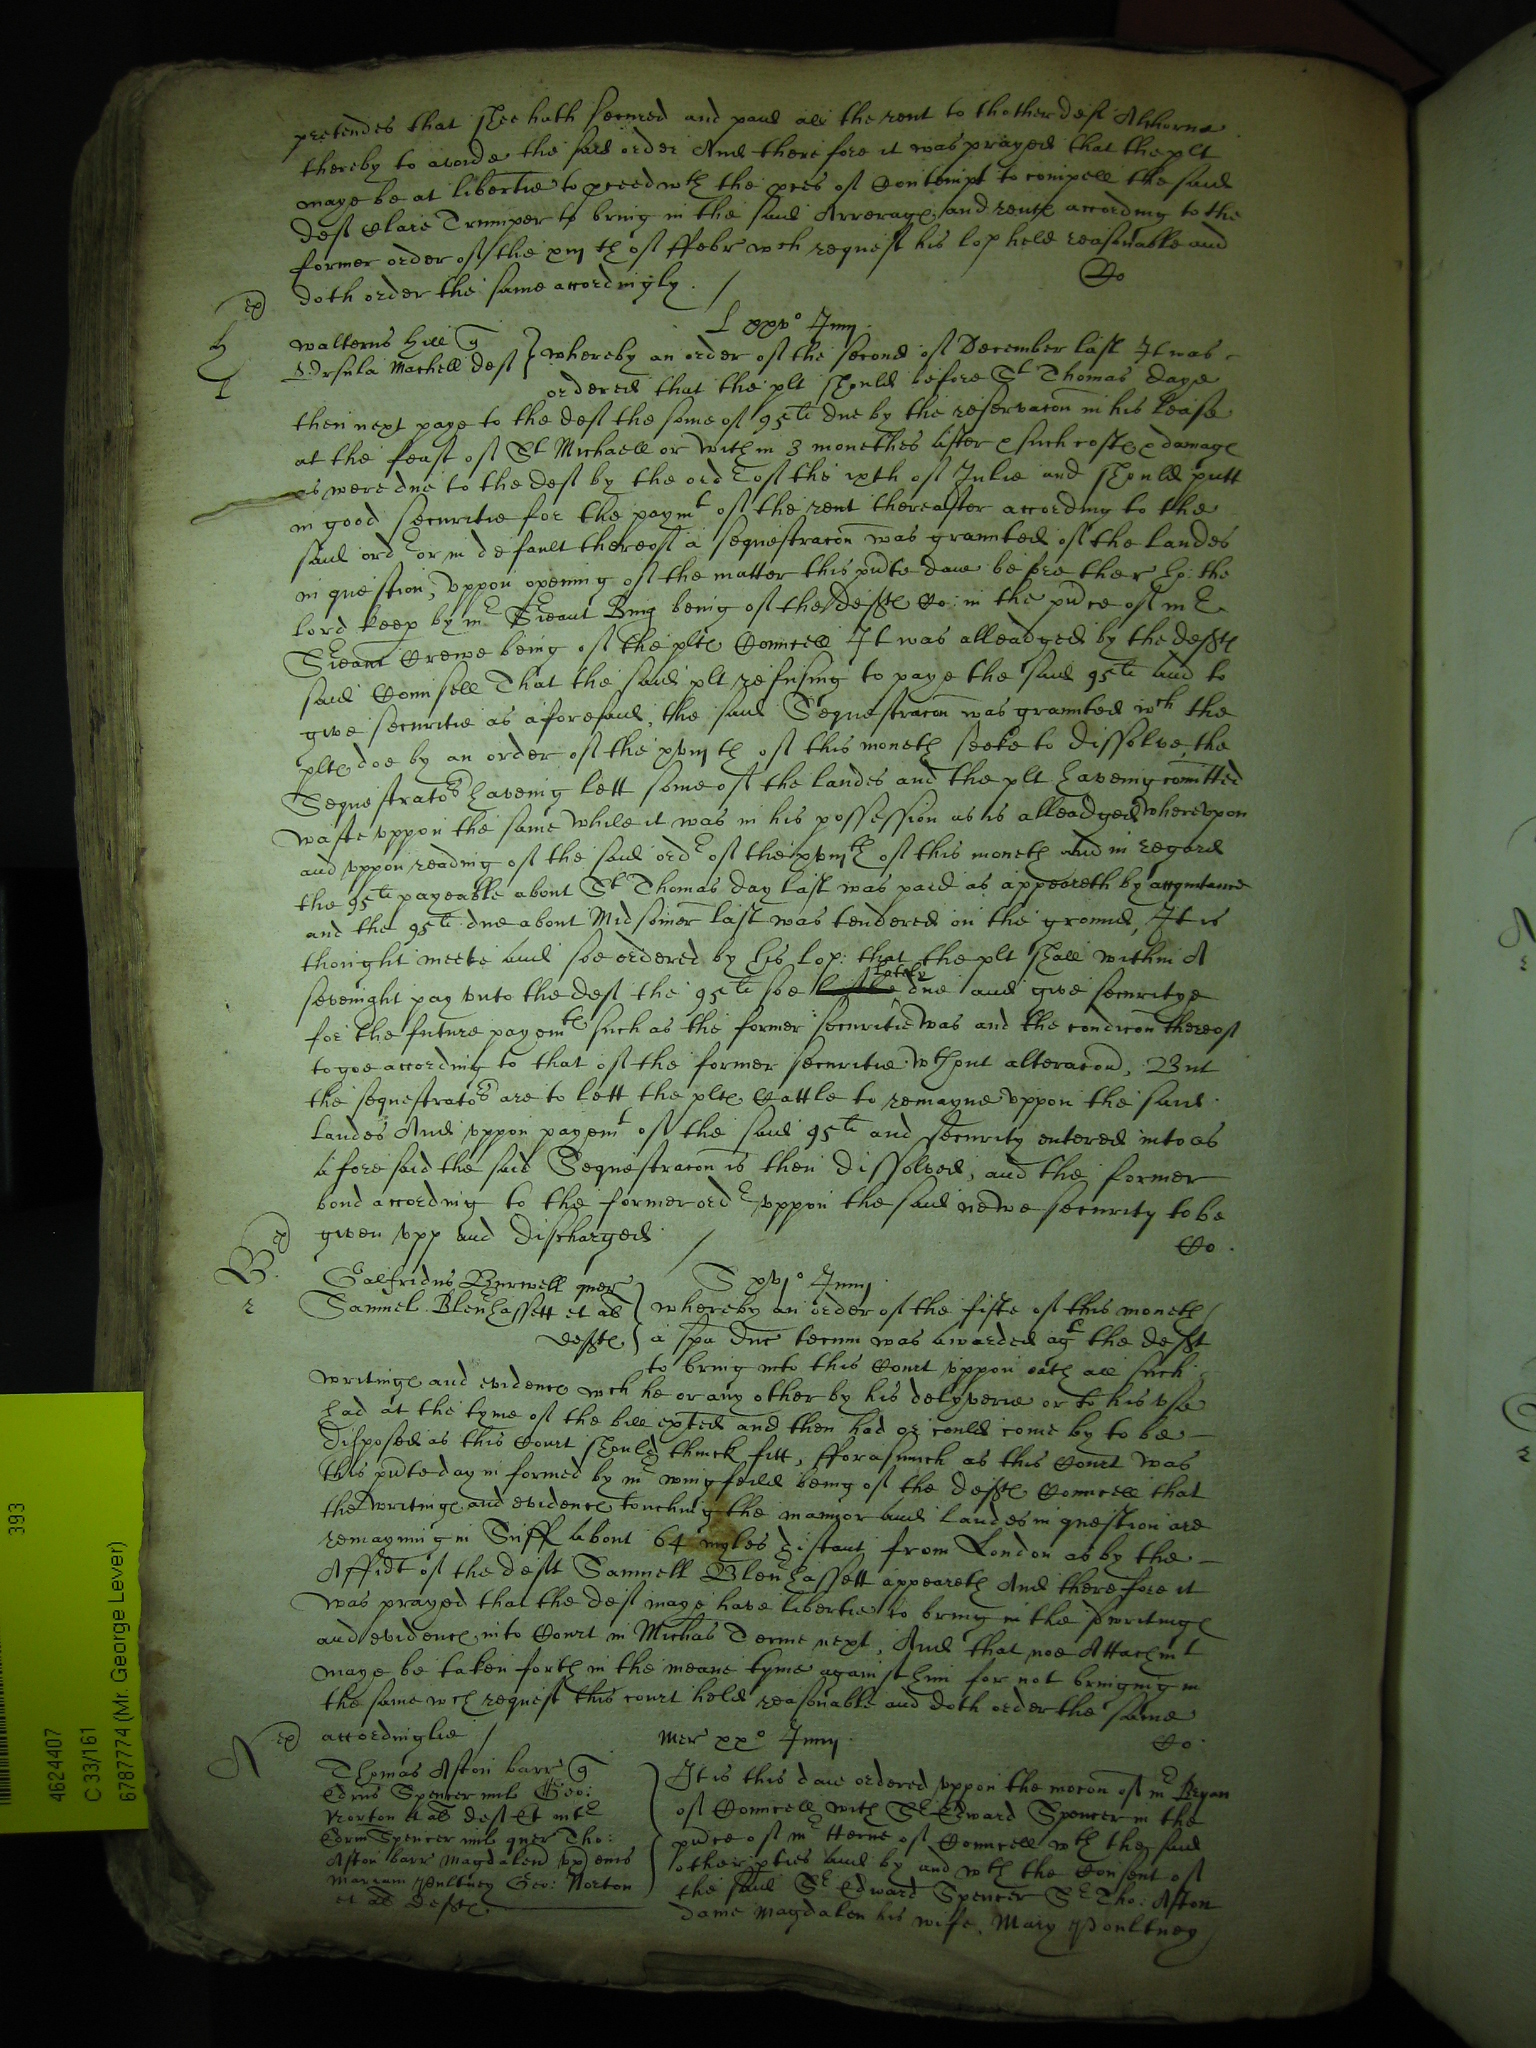 pretendes that shee hath secured and paid all the rent to thother deft Alchorne
thereby to avoide the said order And therefore it was prayed that the plt
maye be at libertie to pceed wth the pces of Contempt to compell the said
deft Clare Trumper to bring in the said Arrerages and rente according to the
former order of the xiijth of ffebr wch request his lop held reasonable and
doth order the same accordingly. /
Co
ex
h
1
L xxvo Junij.
Walterus Hill q
Ursula Machell deft
whereby an order of the second of December last It was
ordered that the plt should before St Thomas daye
then next paye to the deft the some of 95li due by the reservacon in his lease
at the feast of St Michaell or within 3 monethes after & such costes & damages
as were due to the deft by the ordr of the ixth of Julie and should putt
in good securitie for the paymt of the rent thereafter according to the
said ordr or in default thereof a sequestracon was graunted of the landes
in question, uppon opening of the matter this pnte daie before the r. ho: the
lord keep by mr Sieant Bing being of the defts Co: in the pnce of mr
Sieant Crewe being of the plts Councell It was alleadged by the defts
said Counsell That the said plt refusing to paye the said 95li and to
give securitie as aforesaid, the said Sequestracon was graunted wch the
plts doe by an order of the xviijth of this moneth seeke to dissolve, the
Sequestrators haveing lett some of the landes and the plt haveing comitted
waste uppon the same while it was in his possession as is alleadged whereupon
and uppon reading of the said ordr of the xviijth of this moneth and in regard
the 95li payeable about St Thomas day last was paid as appeareth by acquitance
and the 95li due about Midsomer last was tendered on the ground, It is
thought meete and soe ordered by his lop: that the plt shall within A
sevenight pay unto the deft the 95li soe lately due and give securitye
for the future payemts such as the former securitie was and the condicon thereof
to goe according to that of the former securitie wthout alteracon, But
the sequestrators are to lett the plts Cattle to remayne uppon the said
landes And uppon payemt of the said 95li and security entered into as
aforesaid the said Sequestracon is then dissolved, and the former
bond according to the former ordr uppon the said newe security to be
given upp and discharged. /
Co.
ex
B
2
S xvjo Junij.
Galfridus Burwell quer
Samuel Blenhassett et al
defts
whereby an order of the fifte of this moneth
a spa duc tecum was awarded agt the deft
to bring into this Court uppon oath all such
writinges and evidences wch he or any other by his delyverie or to his use
had at the tyme of the bill exted and then had or could come by to be
disposed as this Court should thinck fitt, fforasmuch as this Court was
this pnte day informed by mr wingfeild being of the defts Councell that
the writinges and evidences touching the mannor and landes in question are
remayning in Suff about 64 myles distant from London as by the
Affidt of the deft Samuell Blenhassett appeareth And therefore it
was prayed that the deft maye have libertie to bring in the s writinges
and evidences into Court in Michas Terme next, And that noe Attachmt
maye be taken forth in the meane tyme against him for not bringing in
the same wch request this court held reasonable and doth order the same
accordinglie /
Co.
ex
N
Mer xxo Junij.
Thomas Aston barr q
Edrus Spencer mil Geo:
Norton et al deft Et intr
Edrm Spencer mil quer Tho:
Aston barr Magdalen ux eius
Mariam Poultney Geo: Norton
et al defts.
It is this daie ordered uppon the mocon of mr Bryan
of Councell with Sr Edward Spencer in the
pnce of mr Herne of Councell wth the said
other pties and by and wth the Consent of
the said Sr Edward Spencer Sr Tho: Aston
dame Magdalen his wife, Mary Poultney
393
4624407
C 33/161
6787774 (Mr. George Lever)